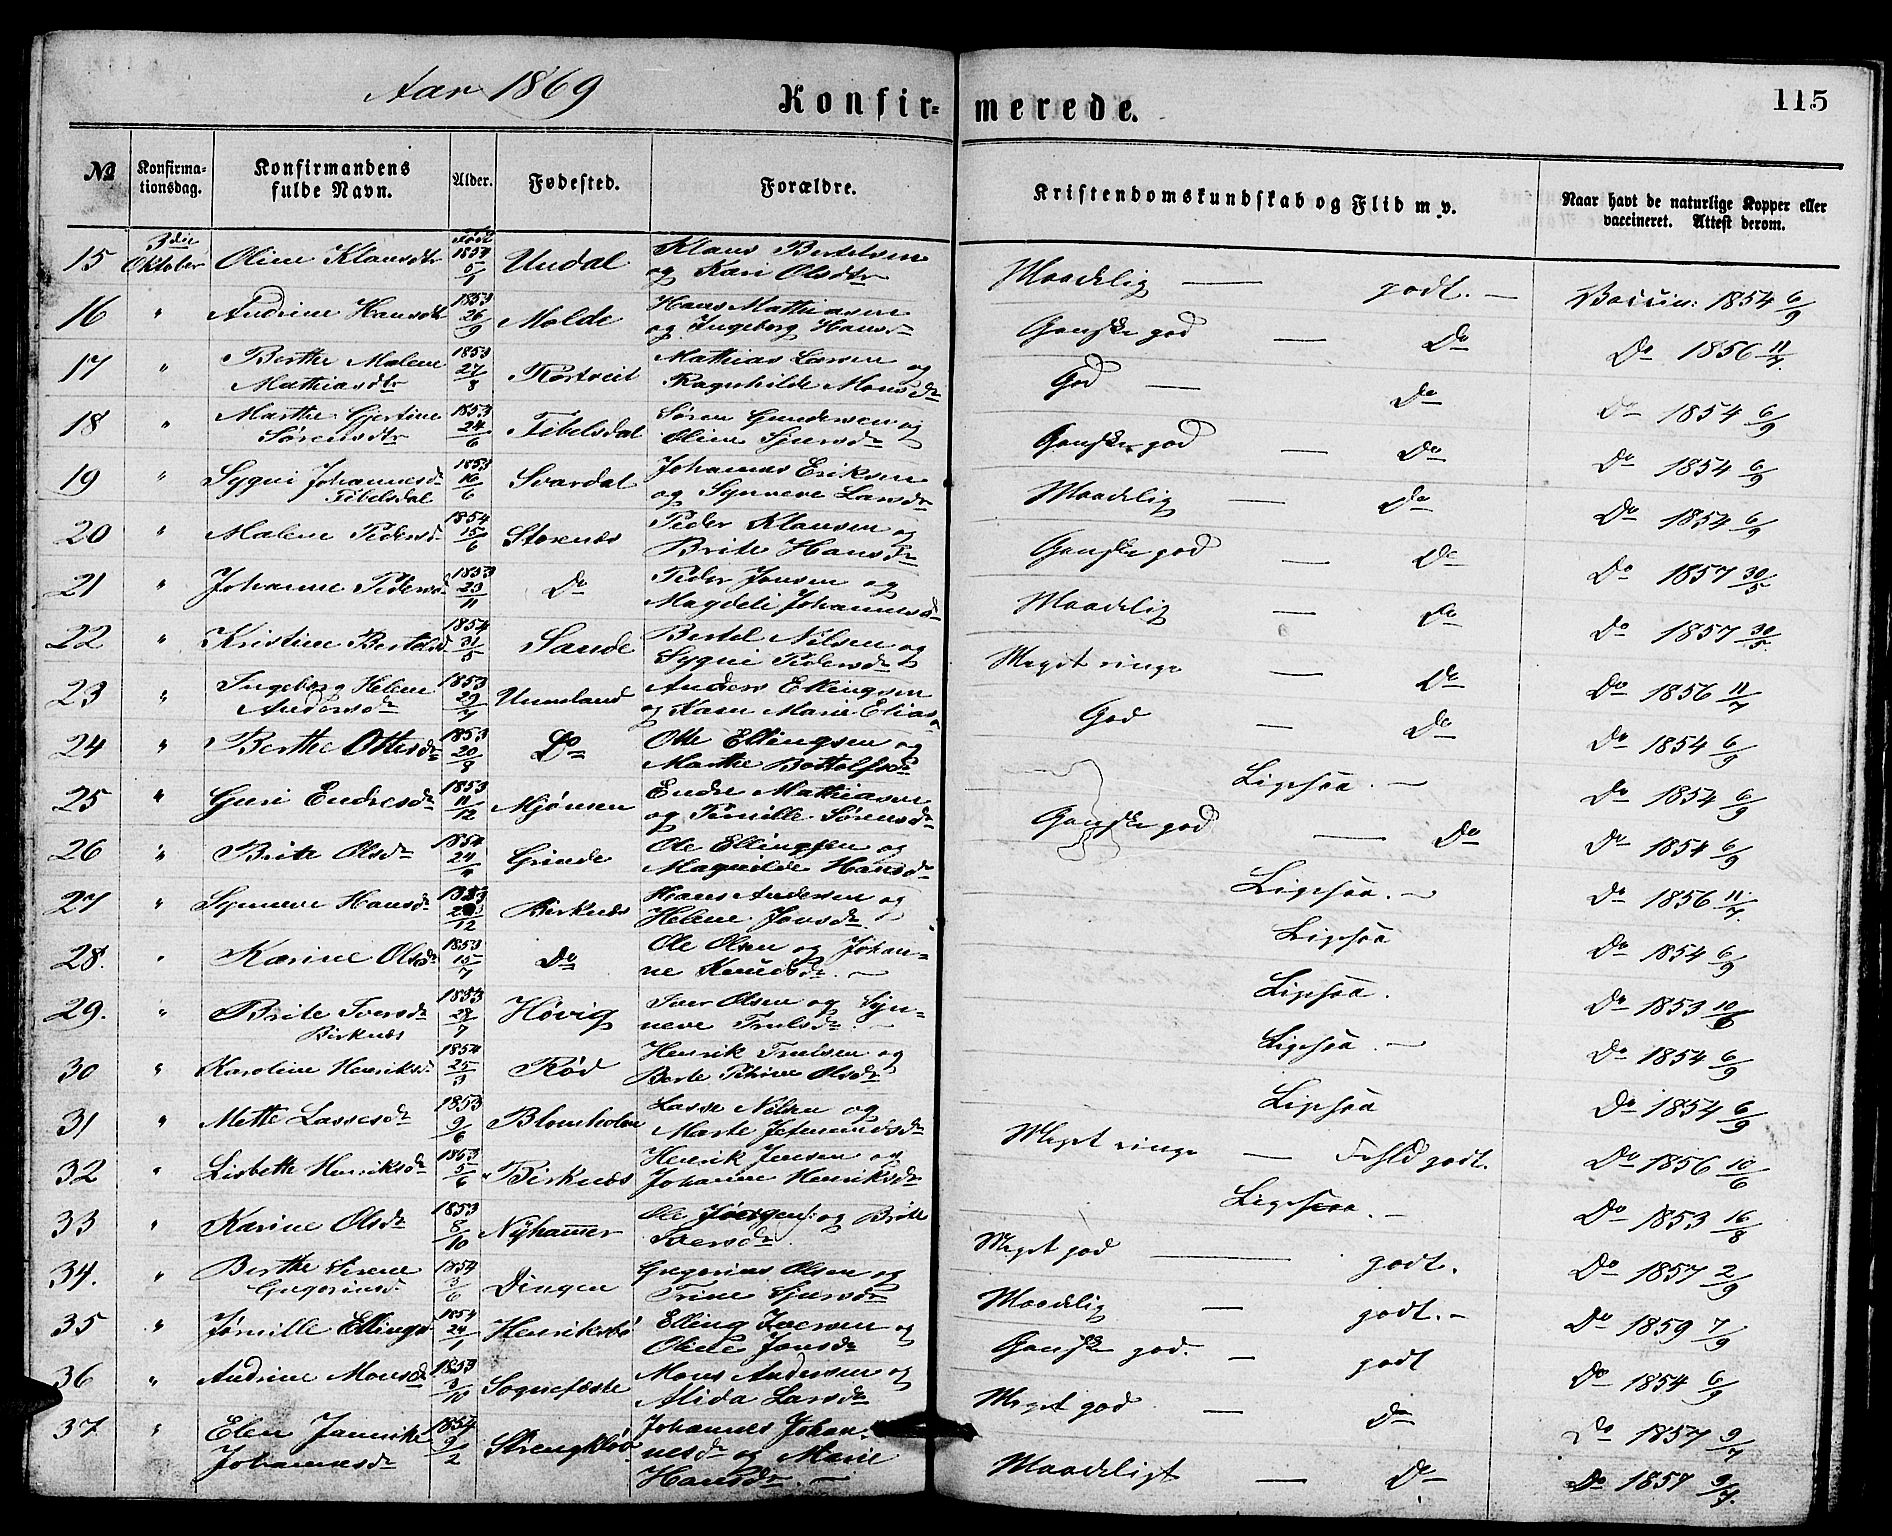 Aar 1869
Konfir-merede.
115
No
Konfirma-tionsdag.
Konfirmandens fulde Navn.
Alder.
Fødested.
Forældre.
Kristendomskundskab og Flid m. v.
Naar havt de naturlige Kopper eller vaccineret. Attest derom.
15 3die Oktober Oline Klausdtr født 1854 Undal Klaus Bertelsen og Kari Olsdtr Maadelig — godt. — Vaccin: 1854 6/9
16 " Andrine Hansdtr 1853 26/9 Molde Hans Mathiasen og Ingeborg Hansdr Ganske god — Do Do 1856 11/7
17 " Berthe Malene Mathiasdtr 1853 27/8 Førtveit Mathias Larsen og Ragnhilde Monsdr God — Do Do 1854 6/9
18 " Marthe Gjertine Sørensdtr 1853 24/6 Tibelsdal Søren Gundersen og Oline Sjursdr Ganske god — Do Do 1854 6/9
19 " Sygni Johannesdr Tibelsdal 1853 16/6 Svardal Johannes Eriksen og Synneve Larsdr Maadelig — Do Do 1854 6/9
20 " Malene Pedersd 1854 15/6 Storenæs Peder Klausen og Brite Hansdr Ganske god — Do Do 1857 30/5
21 " Johanne Pedersdr 1853 23/11 Do Peder Jonsen og Magdeli Johannesdr Maadelig — Do Do 1857 30/5
22 " Kristine Bertelsd 1854 31/5 Sande Bertel Nilsen og Sygni Pedersdr Meget ringe — Do Do 1856 11/7
23 " Ingeborg Helene Andersdr 1853 29/7 Unneland Anders Ellingsen og Karn Marie Elias God — Do Do 1854 6/9
24 " Berthe Ottesdr 1853 20/8 Do Otte Ellingsen og Marthe Bottolfsdr Ligesaa. — Do 1854 6/9
25 " Guri Endresdr 1853 11/12 Mjønsen Endre Mathiasen og Pernille Sørensdr Ganske god — Do Do 1854 6/9
26 " Brite Olsdr 1854 24/ Grinde Ole Ellingsen og Magnilde Hansdr Ligesaa. — Do 1856 11/7.
27 " Synneve Hansdr 1853 /12 Birknæs Hans Andersen og Helene Jonsdr Ligesaa Do 1854 6/9
28. " Karine Olsdr 1853 15/7 Do Ole Olsen og Johanne Knudsdr. — Ligesaa. Do 1853 10/
29. " Brite Iversdr Birknæs 1853 29/7 Høvig Iver Olsen og Synneve Trulsdr — Ligesaa. — Do 1854 6/9
30 " Karoline Henriksdr 1854 25/3 Rød Henrik Trulsen og Berte Olsdr Ligesaa Do 1854 6/9
31 " Mette Lassesdr 1853 9/6 Blomholm Lasse Nilsen og Marte Jetmundsdr Meget ringe — godt. Do 1856 10/6
32 " Lisbethe Henriksdr 1853 5/6 Birknæs Henrik Jensen og Johanne Henriksdr Ligesaa. — Do 1853 16/8
33 " Karine Olsdr 1853 8/10 Nyhamer Ole Jørgens: og Brite Iversdr. Meget god — godt. Do 1857 2/9
34. " Berthe Serene Gregoriusd 1854 3/6 Dingen Gregorius Olsen og Trine Sjursdr Maadelig — godt. — Do 1859 7/9
35 " Jørnille Ellings 1854 24/1 Henriksbø Elling Iversen og Oline Jonsdr Ganske god. — godt Do 1854 6/9
36 " Andrine Monsdr 1853 3/10 Sognefæste Mons Andersen og Alida Larsdr Meget god — Do Do 1857 9/7
37 " Elen Jannike Johannesdr 1854 9/2 Johannes Johannesdr og Marie Hansdr. — Maadeligt — Do Do 1857 9/7.